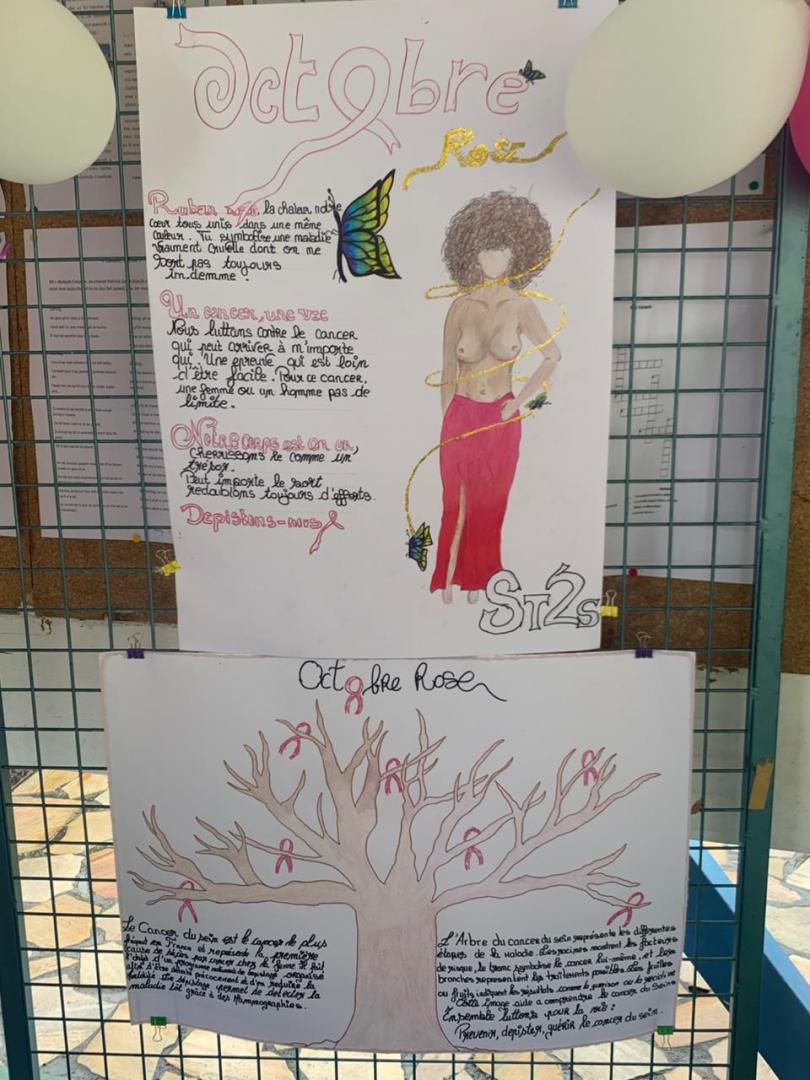 Octobre
Rose
Ruban rose, la chaleur notre
cœur tous unis dans une même
couleur. Tu symbolise une maladie
vraiment cruelle dont on ne
sort pas toujours
indemme.
Un cancer, une vie
Nous luttons contre le cancer
qui peut arriver à m'importe
qui. Une épreuve qui est loin
d'être facile. Pour ce cancer,
une femme ou un homme pas de
limite.
Notre corps est en or,
cherrissons le comme un
trésor.
Peut importe le sort
redoublons toujours d'efforts.
Dépistons-nous
ST2S
Octobre Rose
Le Cancer du sein est le cancer le plus
fréquent en France et représente la première
cause de décès par cancer chez la femme. Il fait
l'objet d'un programme national de dépistage organisé
afin d'être détecté précocement et d'en réduire la
Le dépistage permet de détecter la
maladie tôt grâce à des mammographies.
L'Arbre du cancer du sein représente les différentes
étapes de la maladie. Les racines montrent les facteurs
de risque, le tronc symbolise le cancer lui-même, et les
branches représentent les traitements possibles. Les feuilles
ou fruits indiquent les résultats, comme la guérison ou la récidive
Cette image aide a comprendre le cancer du sein.
Ensemble luttons pour la vie:
Prévenir, dépister, guérir le cancer du sein.